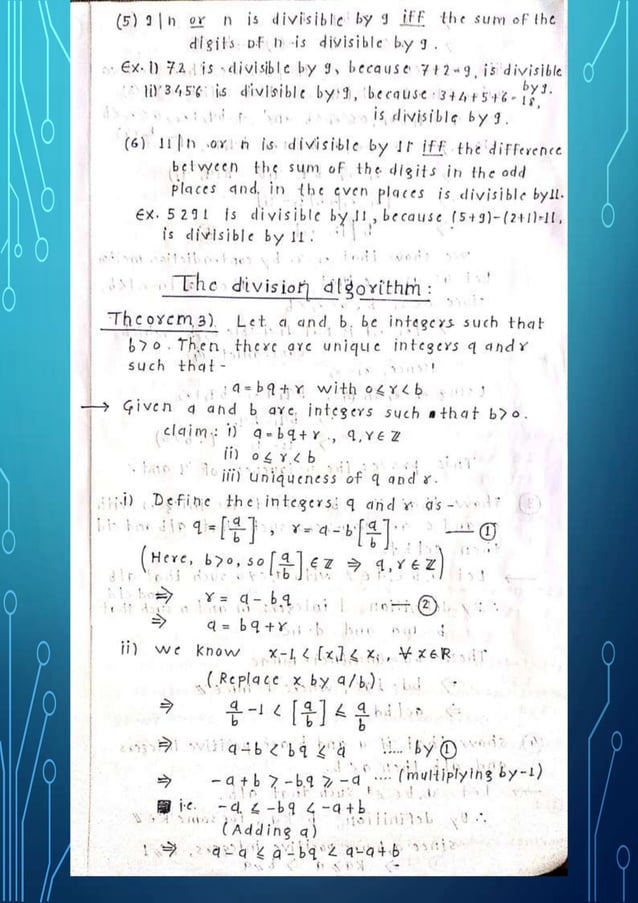 (5) 9|n or n is divisible by 9 iff the sum of the
digits of n is divisible by 9.
Ex. i) 72 is divisible by 9, because 7+2=9, is divisible by 9.
ii) 3456 is divisible by 9, because 3+4+5+6=18,
is divisible by 9.
(6) 11|n or n is divisible by 11 iff the difference
between the sum of the digits in the odd
places and in the even places is divisible by 11.
Ex. 5291 is divisible by 11, because (5+9)-(2+1)=11,
is divisible by 11.
The division algorithm:
Theorem 3) Let a and b be integers such that
b>0. Then there are unique integers q and r
such that -
a=bq+r with 0≤r<b
→ Given a and b are integers such that b>0.
claim: i) a=bq+r, q,r∈ℤ
ii) 0≤r<b
iii) uniqueness of q and r.
i) Define the integers q and r as -
q=[a/b], r=a-b[a/b] — ①
(Here, b>0, so [a/b]∈ℤ ⇒ q,r∈ℤ)
⇒ r=a-bq — ②
⇒ a=bq+r
ii) we know x-1<[x]≤x, ∀x∈R
(Replace x by a/b)
⇒ a/b-1<[a/b]≤a/b
⇒ a-b<bq≤a .... by ①
⇒ -a+b>-bq≥-a .... (multiplying by -1)
i.e. -a≤-bq<-a+b
(Adding a)
⇒ a-a≤a-bq<a-a+b